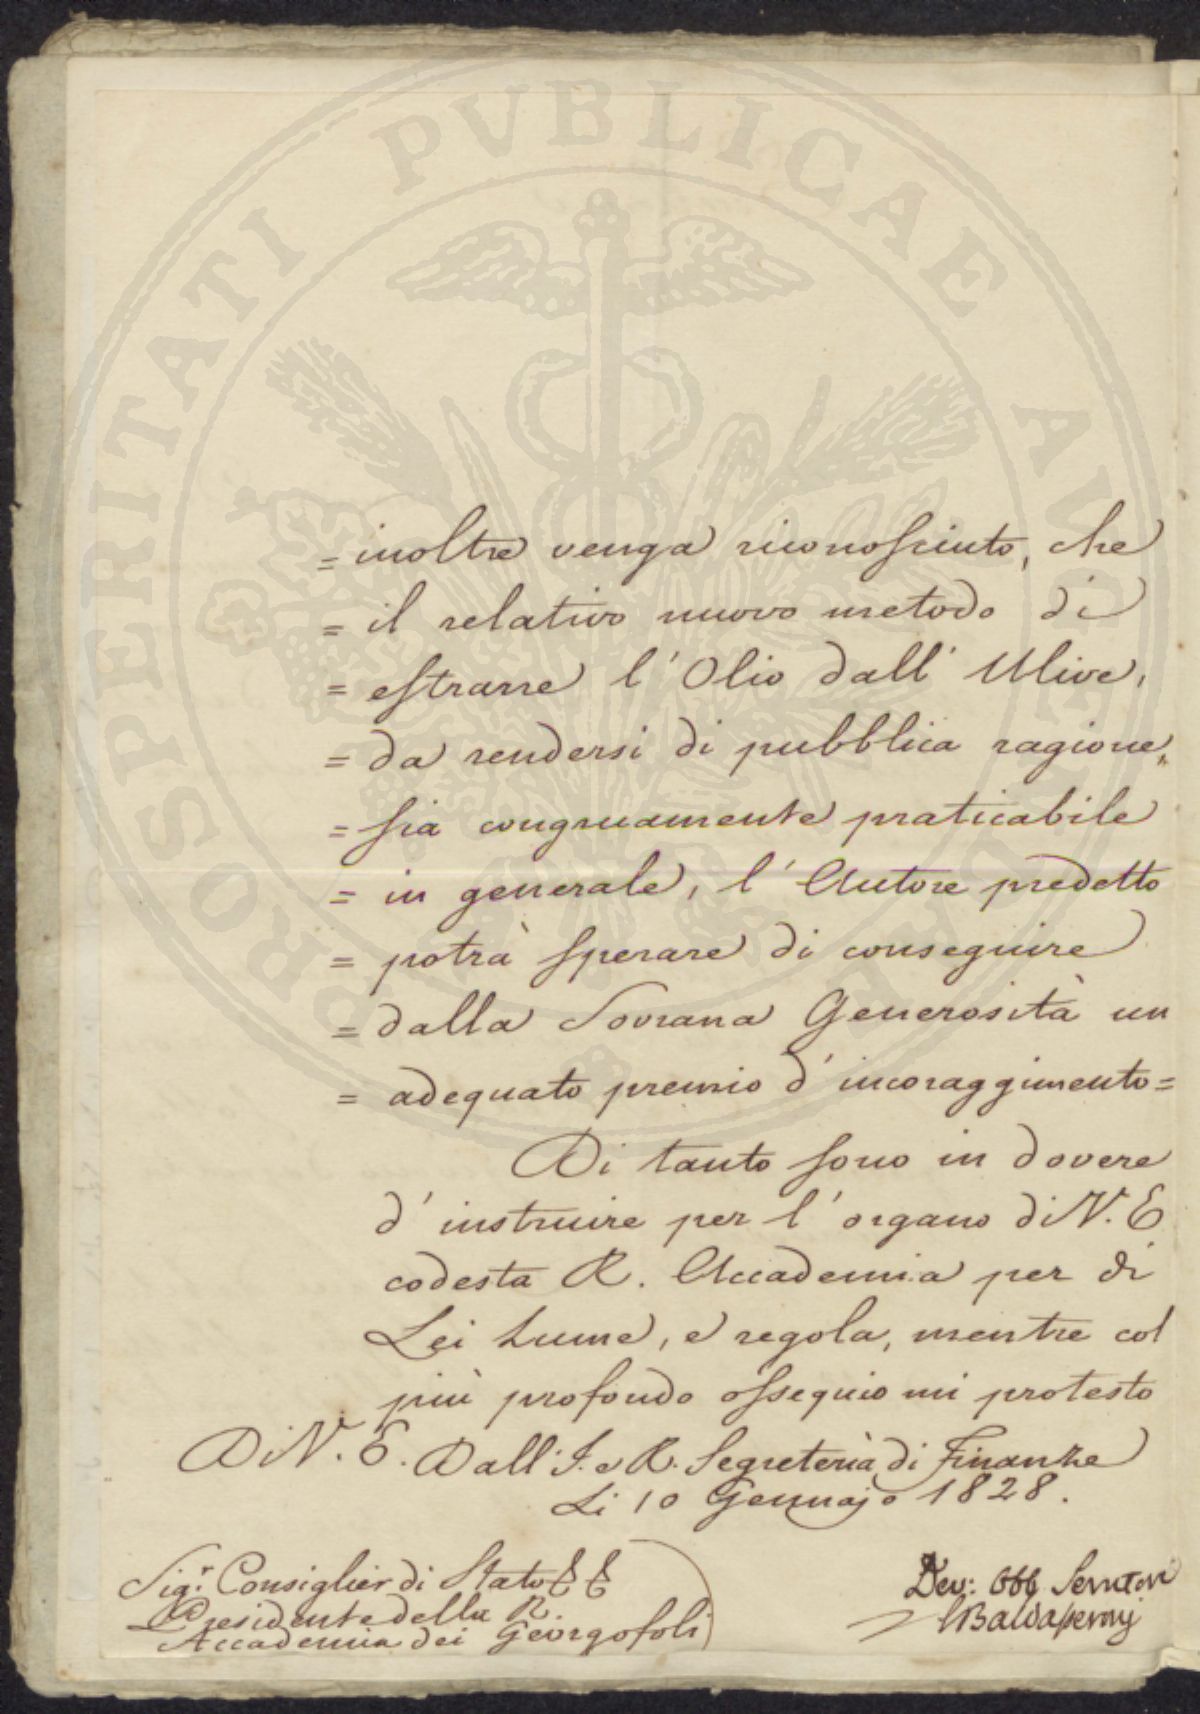 PROSPERITATI PVBLICAE AVGENDAE
= inoltre venga riconosciuto, che
= il relativo nuovo metodo di
= estrarre l'Olio dall'Ulive,
= da rendersi di pubblica ragione,
= sia congruamente praticabile
= in generale, l'Autore predetto
= potrà sperare di conseguire
= dalla Sovrana Generosità un
= adequato premio d'incoraggimento =
Di tanto sono in dovere
d'instruire per l'organo di V. E
codesta R. Accademia per di
Lei Lume, e regola, mentre col
più profondo ossequio mi protesto
Di V. E. Dall'I. e R. Segreteria di Finanze
Li 10 Gennajo 1828.
Sig.r Consiglier di Stato
Presidente della R.
Accademia dei Georgofoli
Dev: Obb Servitore